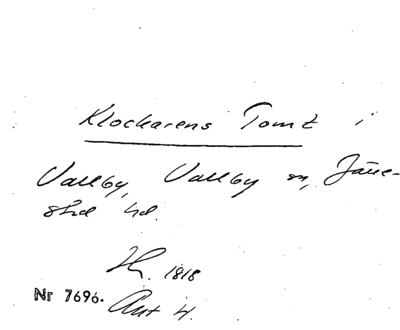 Klockarens Tomt i
Vallby, Vallby sn, Järe-
stad hd.
Th. 1818
Nr 7696. Ant 4.